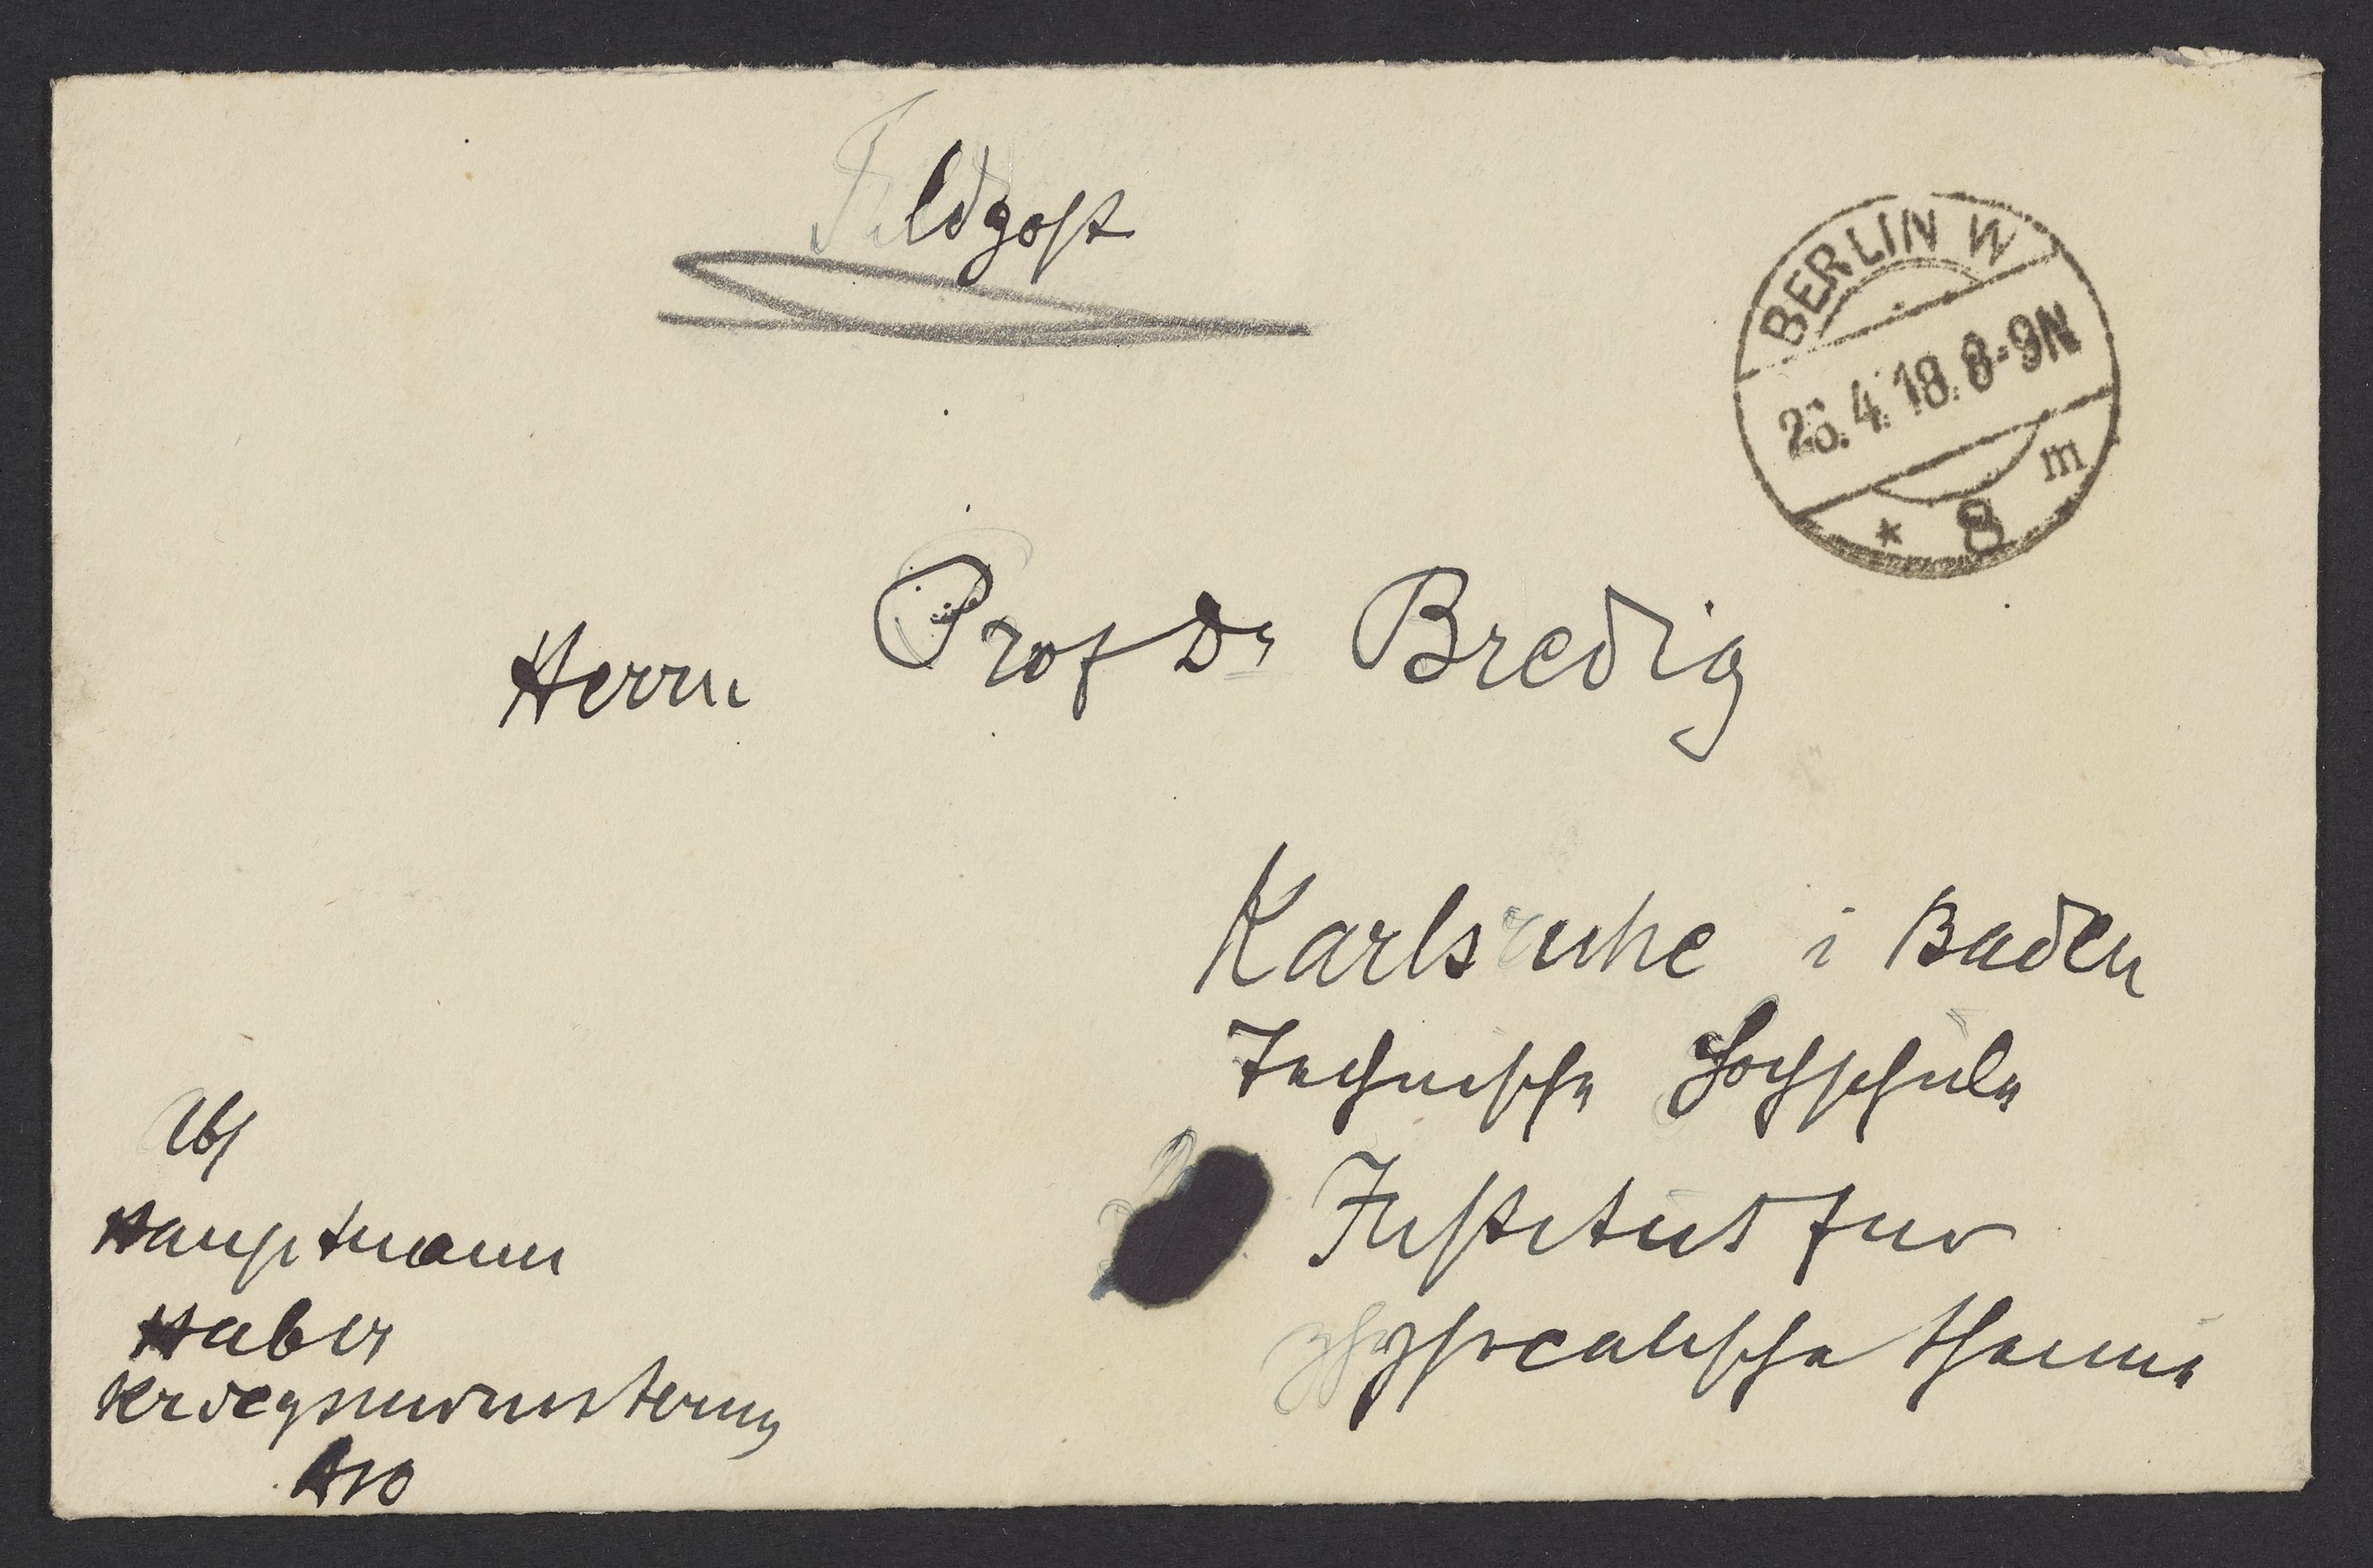 Feldpost
BERLIN W
26.4.18.8-9N
m
* 8
Herrn Prof Dr Bredig
Karlsruhe i Baden
Technische Hochschule
Institut fur
physicalische Chemie
Abs
Hauptmann
Haber
Kriegsministerium
A10